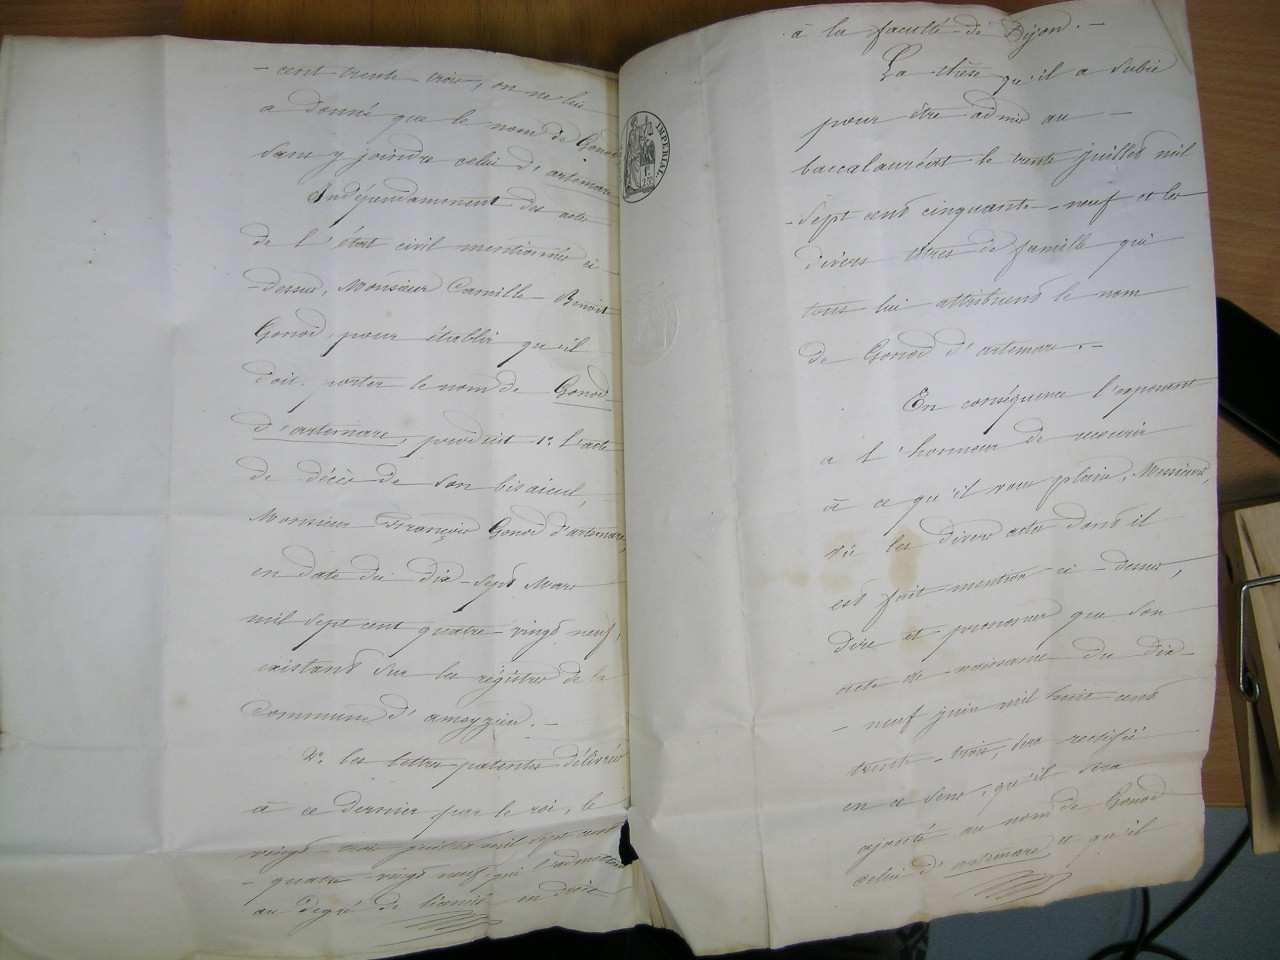 - cent trente trois, on ne lui
a donné que le nom de Gonod
sans y joindre celui d'artemare
Indépendamment des actes
de l'état civil mentionnés ci
-dessus, Monsieur Camille - Benoit
Gonod, pour établir qu'il
doit porter le nom de Gonod
d'artemare, produit 1º. l'acte
de décès de son bisaieul,
Monsieur François Gonod d'artemare,
en date du dix-sept Mars
mil sept cent quatre-vingt neuf,
existant sur les régistres de la
Commune d'ameyzieu. -
2º. les lettres patentes délivrées
à ce dernier par le roi, le
vingt trois juillet mil sept cent
- quatre-vingt neuf, qui l'admettent
au degré de licencié en droit
à la faculté de Dijon. -
La thèse qu'il a subie
pour être admis au -
baccalauréat le trente juillet mil
-sept cent cinquante-neuf et les
divers titres de famille qui
tous lui attribuent le nom
de Gonod d'artemare. -
En conséquence l'exposant
a l'honneur de recourir
à ce qu'il vous plaise, Messieurs,
vu les divers actes dont il
est fait mention ci-dessus,
dire et prononcer que son
acte de naissance du dix-
- neuf juin mil huit cent
trente-trois, sera rectifié
en ce sens, qu'il sera
ajouté au nom de Gonod
celui d'artemare et qu'il
IMPERIAL